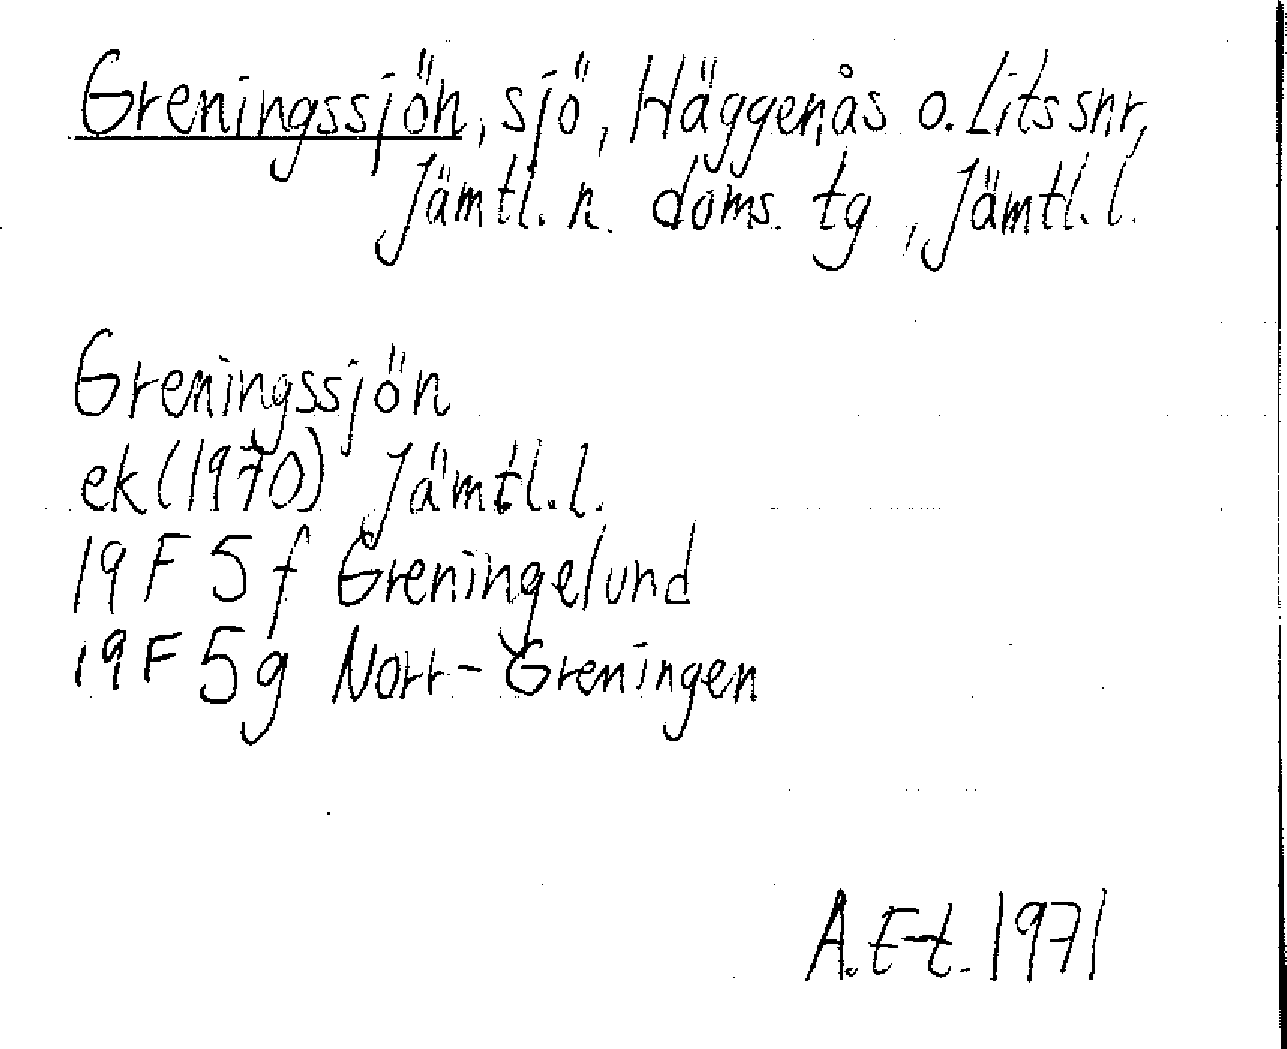 Greningssjön, sjö, Häggenås o. Lits snr,
Jämtl. n. doms. tg, Jämtl. l.
Greningssjön
ek (1970) Jämtl. l.
19 F 5 f Greningelund
19 F 5 g Norr-Greningen
A. E-t. 1971